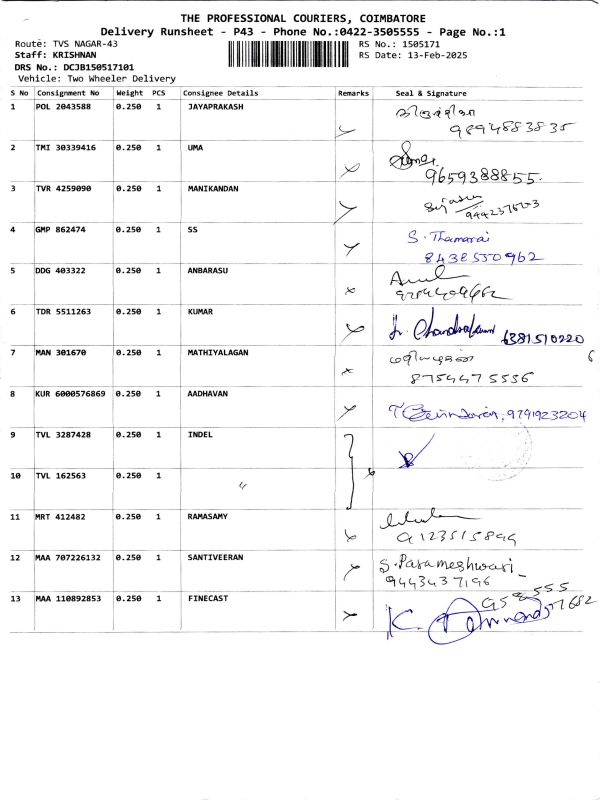 THE PROFESSIONAL COURIERS, COIMBATORE
Delivery Runsheet - P43 - Phone No.:0422-3505555 - Page No.:1
Route: TVS NAGAR-43 RS No.: 1505171
Staff: KRISHNAN RS Date: 13-Feb-2025
DRS No.: DCJB150517101
Vehicle: Two Wheeler Delivery
S No Consignment No Weight PCS Consignee Details Remarks Seal & Signature
1 POL 2043588 0.250 1 JAYAPRAKASH
9894883835
2 TMI 30339416 0.250 1 UMA
9659388855.
3 TVR 4259090 0.250 1 MANIKANDAN
4 GMP 862474 0.250 1 SS S. Thamarai
8438550962
5 DDG 403322 0.250 1 ANBARASU
6 TDR 5511263 0.250 1 KUMAR 6381510220
7 MAN 301670 0.250 1 MATHIYALAGAN
8754475536
8 KUR 6000576869 0.250 1 AADHAVAN 9791923204
9 TVL 3287428 0.250 1 INDEL
10 TVL 162563 0.250 1 〃
11 MRT 412482 0.250 1 RAMASAMY
12 MAA 707226132 0.250 1 SANTIVEERAN S. Parameshwari
9443437196
13 MAA 110892853 0.250 1 FINECAST